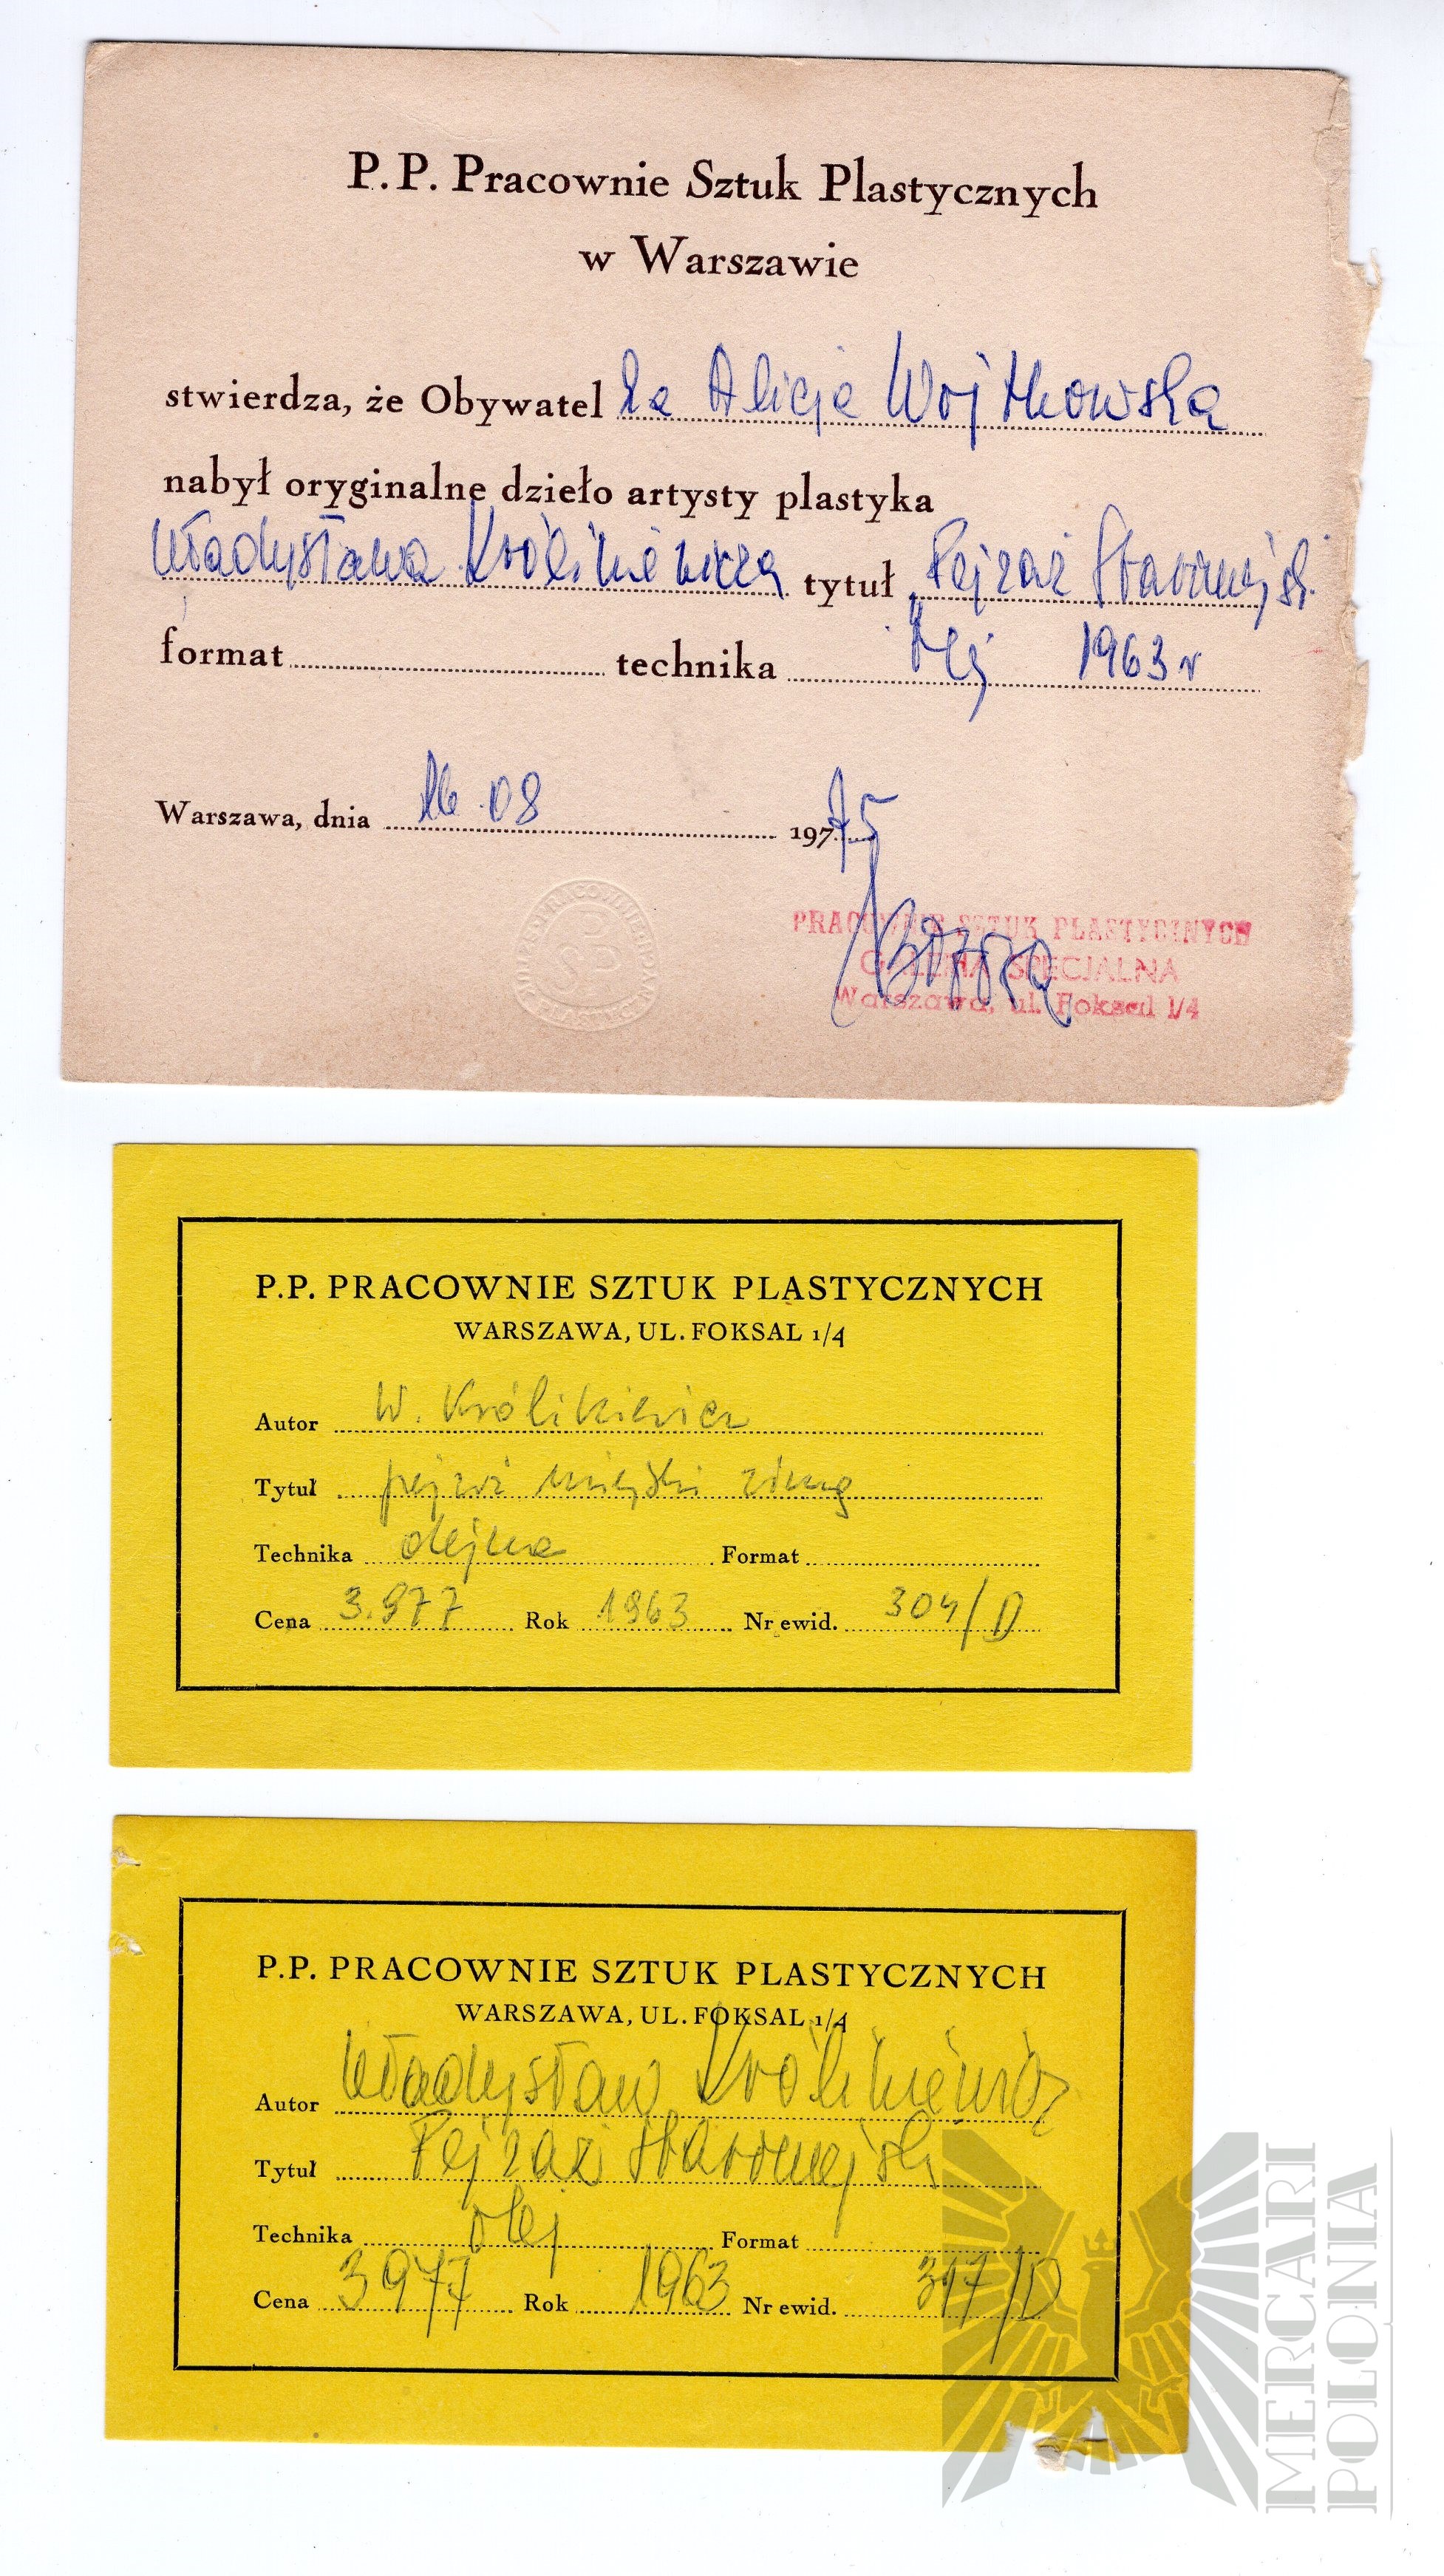 P.P. Pracownie Sztuk Plastycznych
w Warszawie
stwierdza, że Obywatel ka Alicja Wojtkowska
nabył oryginalne dzieło artysty plastyka
Władysława Królikiewicza tytuł "Pejzaż Staromiejski"
format technika olej 1963 r
Warszawa, dnia 26.08 1975
PRACOWNIE SZTUK PLASTYCZNYCH
GALERIA SPECJALNA
Warszawa, ul. Foksal 1/4
PSP
P.P. PRACOWNIE SZTUK PLASTYCZNYCH
WARSZAWA, UL. FOKSAL 1/4
Autor W. Królikiewicz
Tytuł pejzaż miejski zimą
Technika olejna Format
Cena 3.977 Rok 1963 Nr ewid. 304/D
P.P. PRACOWNIE SZTUK PLASTYCZNYCH
WARSZAWA, UL. FOKSAL 1/4
Autor Władysław Królikiewicz
Tytuł Pejzaż Staromiejski
Technika olej Format
Cena 3977 Rok 1963 Nr ewid. 317/D
MERCARI
POLONIA